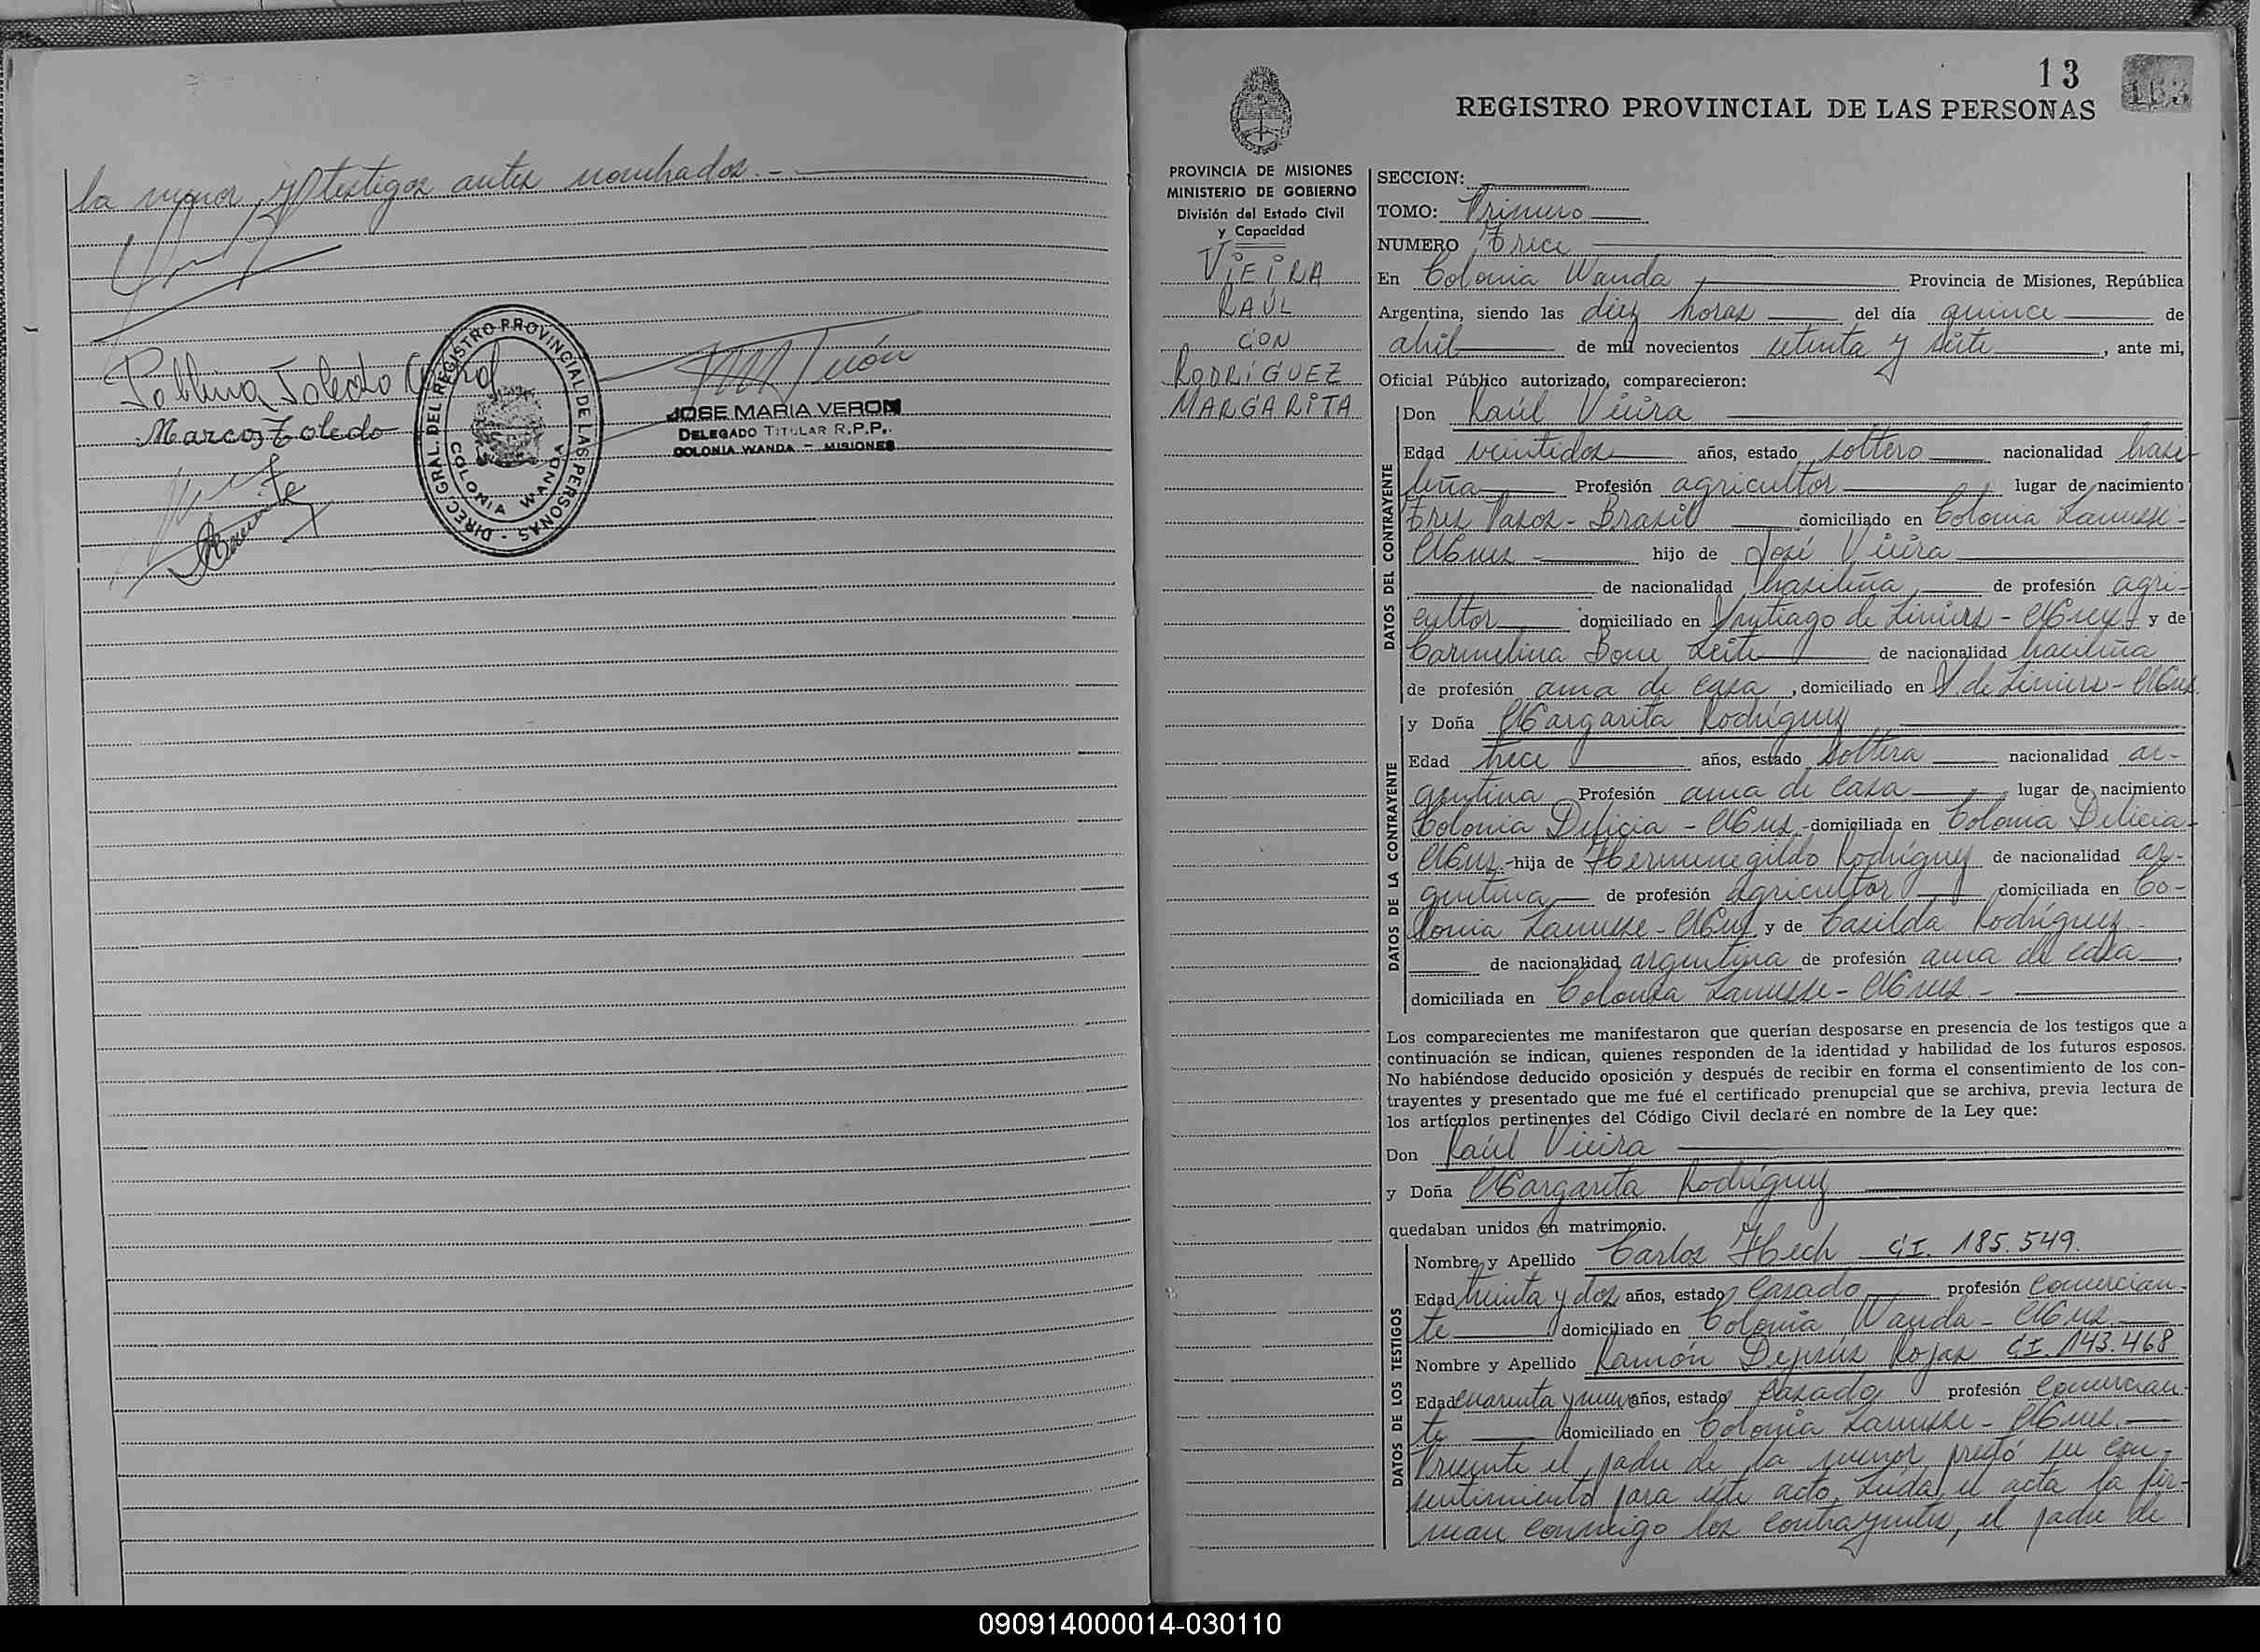 la menor, y testigos antes nombrados.-
Marcos Toledo
DIREC. GRAL. DEL REGISTRO PROVINCIAL DE LAS PERSONAS -
COLONIA WANDA
JOSE MARIA VERON
DELEGADO TITULAR R.P.P.
COLONIA WANDA - MISIONES
13
163
REGISTRO PROVINCIAL DE LAS PERSONAS
PROVINCIA DE MISIONES
MINISTERIO DE GOBIERNO
División del Estado Civil
y Capacidad
VIEIRA
RAÚL
CON
RODRÍGUEZ
MARGARITA
SECCION:
TOMO: Primero
NUMERO Trece
En Colonia Wanda Provincia de Misiones, República
Argentina, siendo las diez horas del día quince de
abril de mil novecientos setenta y siete, ante mi,
Oficial Público autorizado, comparecieron:
DATOS DEL CONTRAYENTE
Don Raúl Vieira
Edad veintidos años, estado soltero nacionalidad brasi-
leña Profesión agricultor lugar de nacimiento
Tres Pasos - Brasil domiciliado en Colonia Lanusse -
Mnes - hijo de José Vieira
de nacionalidad brasileña, de profesión agri-
cultor domiciliado en Santiago de Liniers - Mnes y de
Carmelina Bone Leite de nacionalidad brasileña
de profesión ama de casa, domiciliado en S. de Liniers - Mnes.
DATOS DE LA CONTRAYENTE
y Doña Margarita Rodríguez
Edad trece años, estado soltera nacionalidad ar-
gentina Profesión ama de casa, lugar de nacimiento
Colonia Delicia - Mnes.- domiciliada en Colonia Delicia -
Mnes.- hija de Hermenegildo Rodríguez de nacionalidad ar-
gentina de profesión agricultor domiciliada en Co-
lonia Lanusse - Mnes y de Casilda Rodríguez -
de nacionalidad argentina de profesión ama de casa,
domiciliada en Colonia Lanusse - Mnes.-
Los comparecientes me manifestaron que querían desposarse en presencia de los testigos que a
continuación se indican, quienes responden de la identidad y habilidad de los futuros esposos.
No habiéndose deducido oposición y después de recibir en forma el consentimiento de los con-
trayentes y presentado que me fué el certificado prenupcial que se archiva, previa lectura de
los artículos pertinentes del Código Civil declaré en nombre de la Ley que:
Don Raúl Vieira
y Doña Margarita Rodríguez
quedaban unidos en matrimonio.
DATOS DE LOS TESTIGOS
Nombre y Apellido Carlos Hech C.I. 185.549.
Edad treinta y dos años, estado casado profesión comercian-
te domiciliado en Colonia Wanda - Mnes.
Nombre y Apellido Ramón Dejesús Rojas C.I. 143.468
Edad cuarenta y nueve años, estado casado profesión comercian-
te domiciliado en Colonia Lanusse - Mnes.
Presente el padre de la menor prestó su con-
sentimiento para este acto. Leída el acta la fir-
man conmigo los contrayentes, el padre de
090914000014-030110